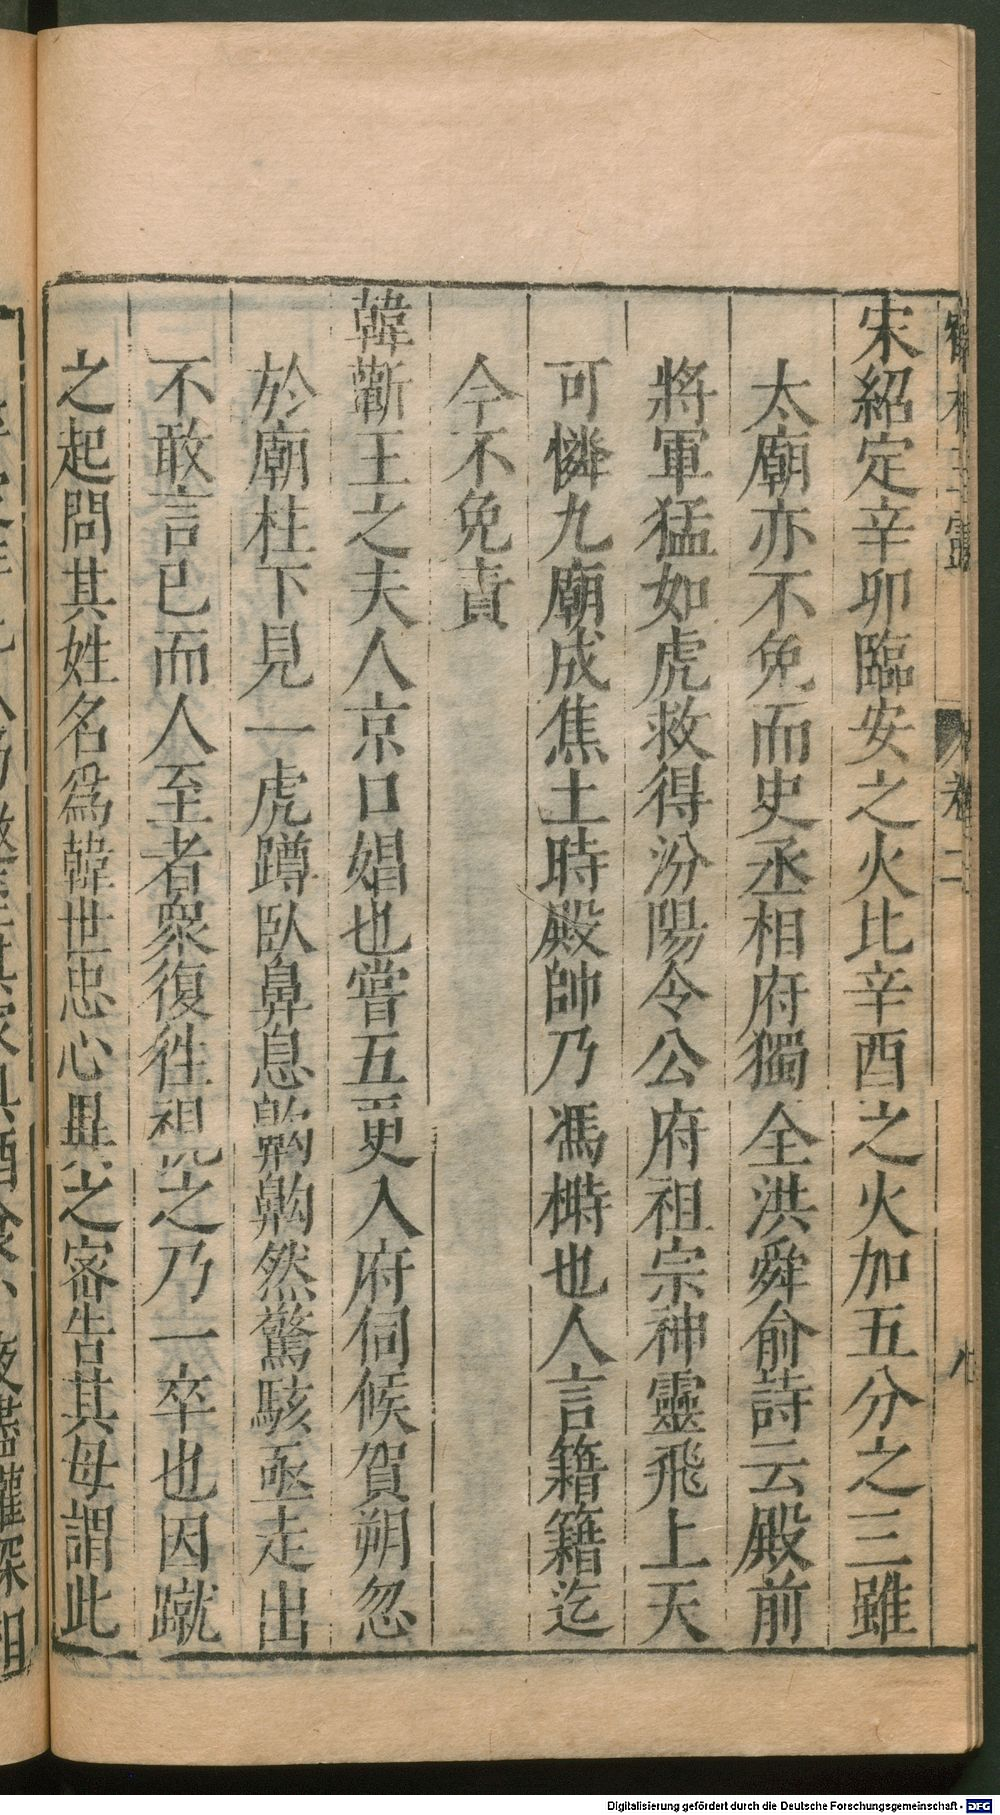 宋紹定辛卯臨安之火比辛酉之火加五分之三雖
太廟亦不免而史丞相府獨全洪舜俞詩云殿前
將軍猛如虎救得汾陽令公府祖宗神靈飛上天
可憐九廟成焦土時殿帥乃馮榯也人言籍籍迄
今不免責
韓蘄王之夫人京口娼也嘗五更入府伺候賀朔忽
於廟柱下見一虎蹲臥鼻息齁齁然驚駭亟走出
不敢言已而人至者衆復徃視之乃一卒也因蹴
之起問其姓名為韓世忠心異之密告其母謂此
卷二
八
Digitalisierung gefördert durch die Deutsche Forschungsgemeinschaft - DFG